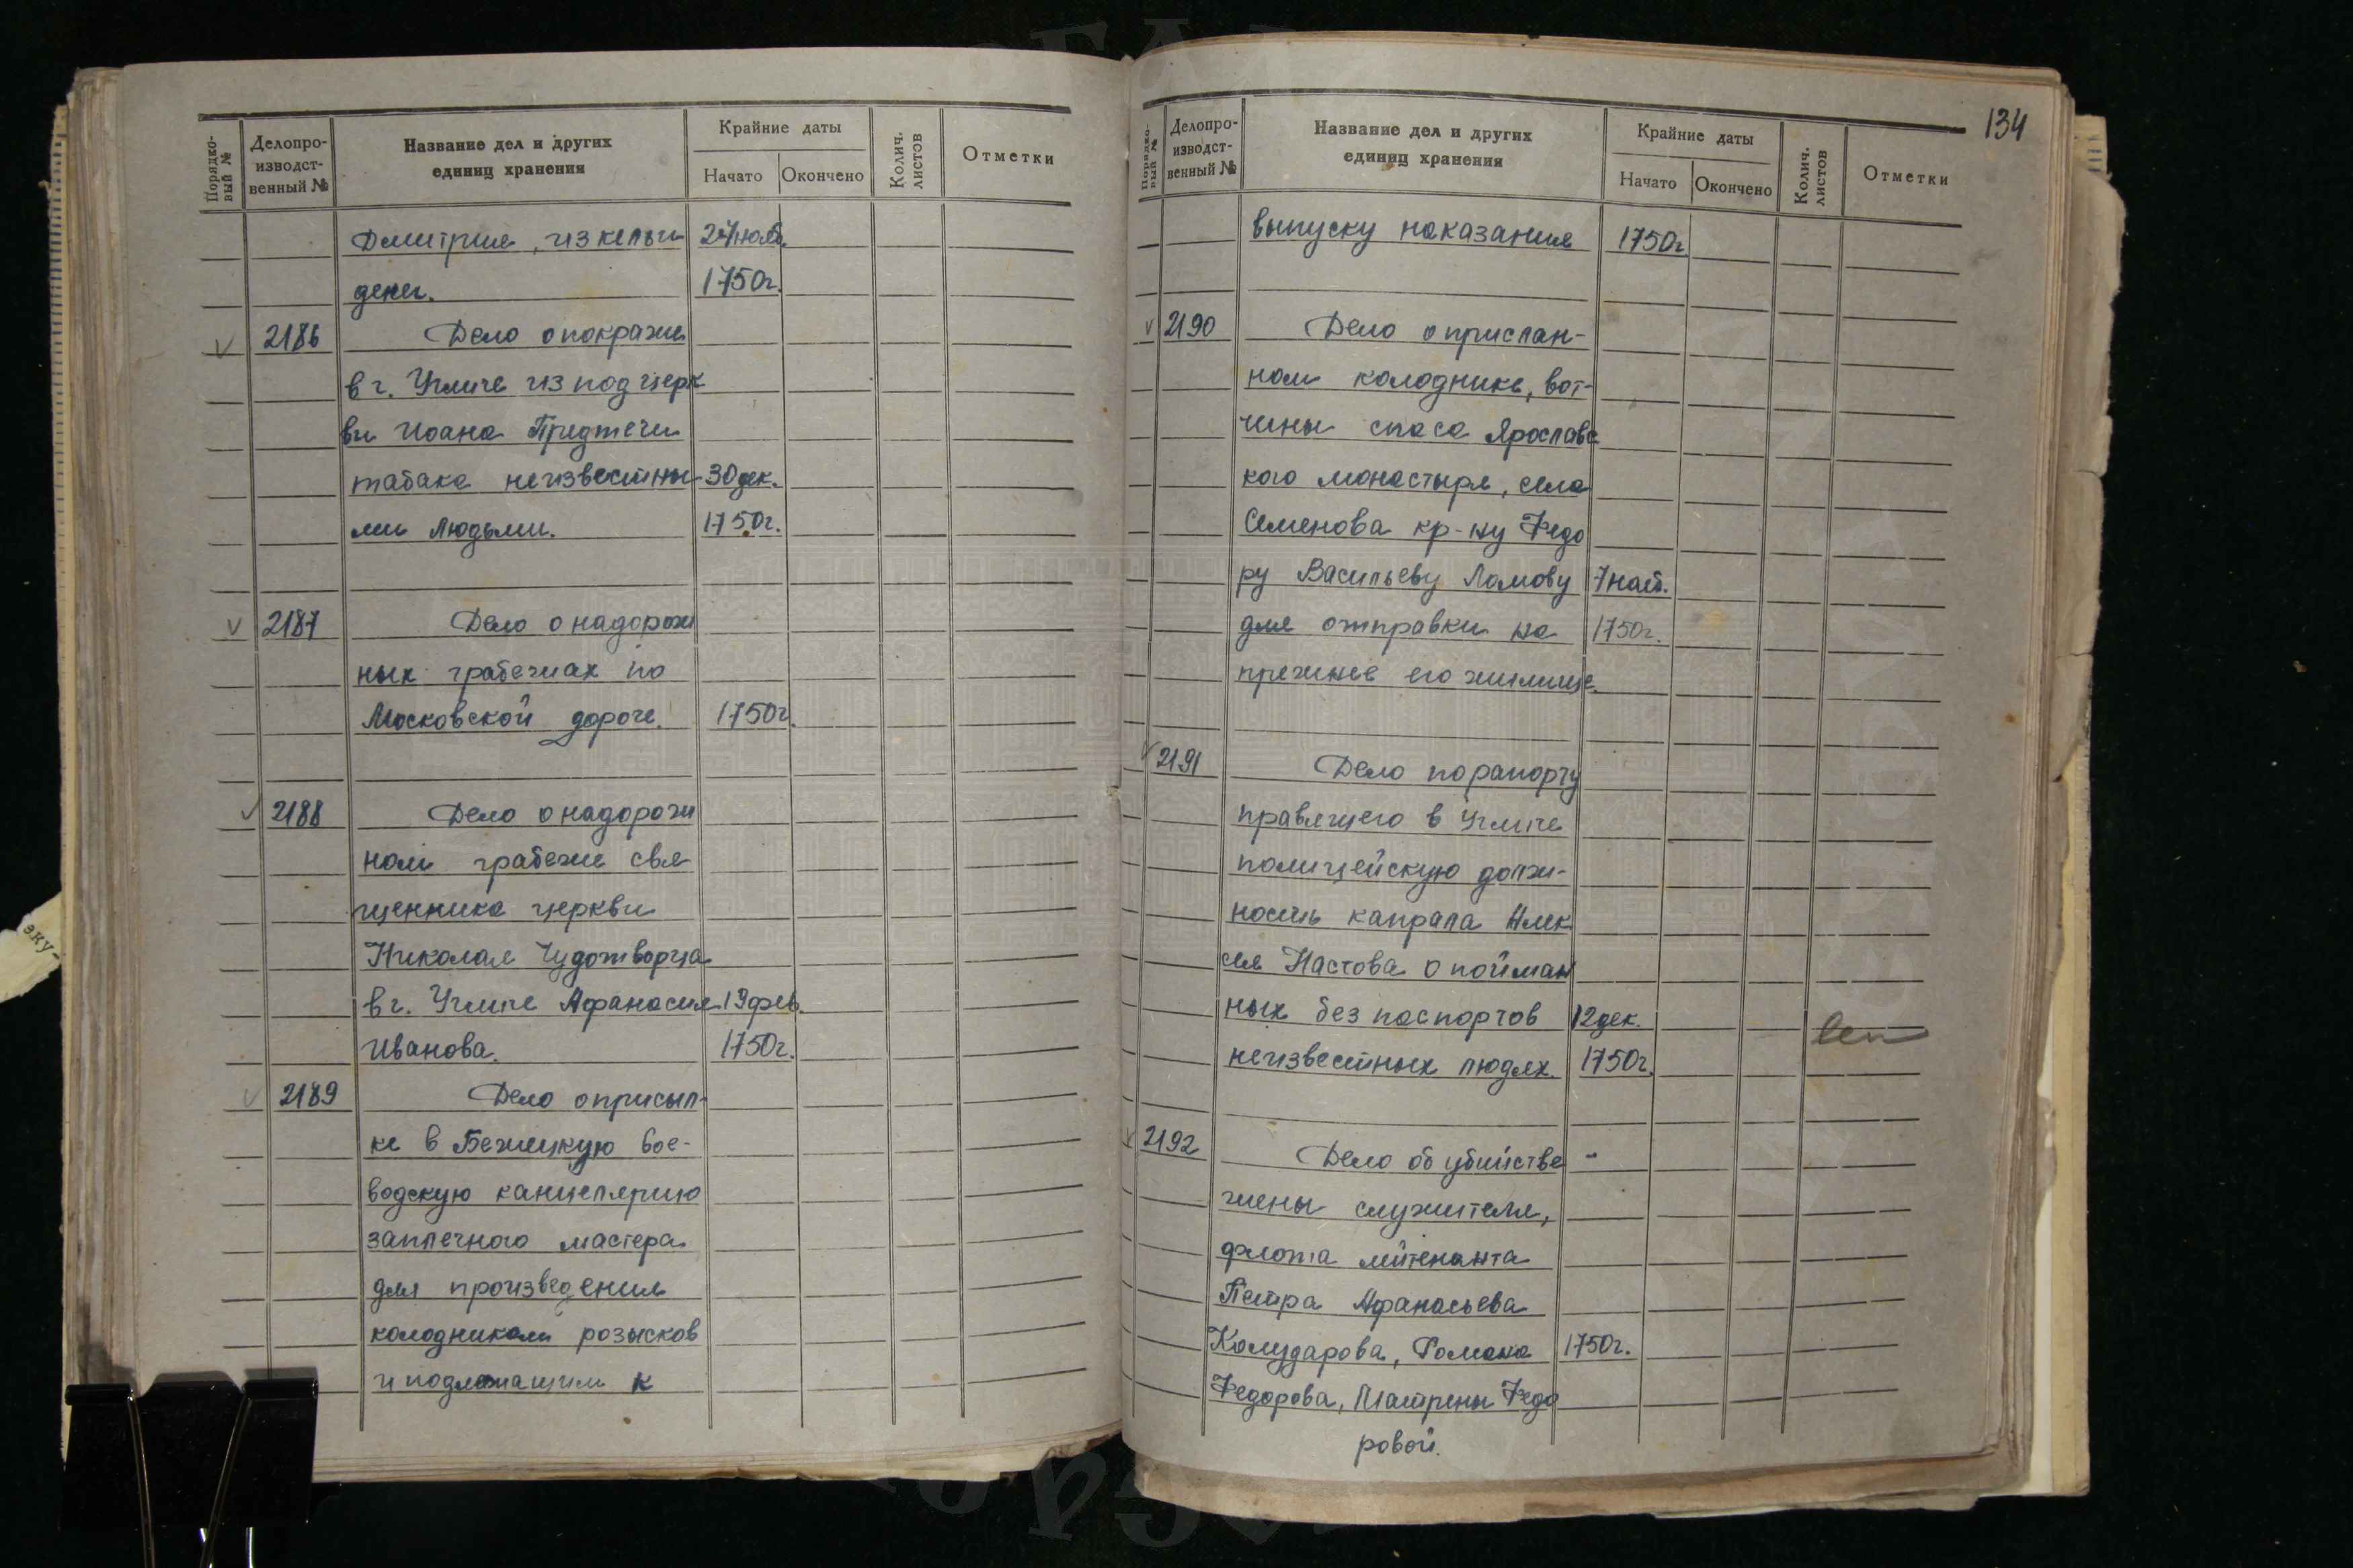 Порядко-
вый №
Делопро-
изводст-
венный №
Название дел и других
единиц хранения
Крайние даты
Начато
Окончено
Колич.
листов
Отметки
Дмитрия, из кельи 27 нояб.
денег. 1750г.
V 2186 Дело о покраже
в г. Угличе из под церк
ви Иоана Предтечи
табака неизвестны- 30 дек.
ми людьми. 1750г.
V 2187 Дело о надорож
ных грабежах по
Московской дороге. 1750г.
V 2188 Дело о надорож
ном грабеже свя
щенника церкви
Николая Чудотворца
в г. Угличе Афанасия 19 фев.
Иванова. 1750г.
V 2189 Дело о присыл-
ке в Бежецкую вое-
водскую канцелярию
заплечного мастера
для произведения
колодникам розысков
и подлежащим к
эку-
134
Порядко-
вый №
Делопро-
изводст-
венный №
Название дел и других
единиц хранения
Крайние даты
Начато
Окончено
Колич.
листов
Отметки
выпуску наказания 1750г.
V 2190 Дело о прислан-
ном колоднике, вот-
чины спаса Ярославс
кого монастыря, села
Семенова кр-ну Федо
ру Васильеву Ломову 7 нояб.
для отправки на 1750г.
прежнее его жилище.
V 2191 Дело по рапорту
правящего в Угличе
полицейскую долж-
ность капрала Алек
сея Настова о пойман
ных без паспортов 12 дек.
неизвестных людях. 1750г.
V 2192 Дело об убийстве -
жены служителя,
флота лейтенанта
Петра Афанасьева
Кожударова, Романа 1750г.
Федорова, Матрены Федо
ровой.